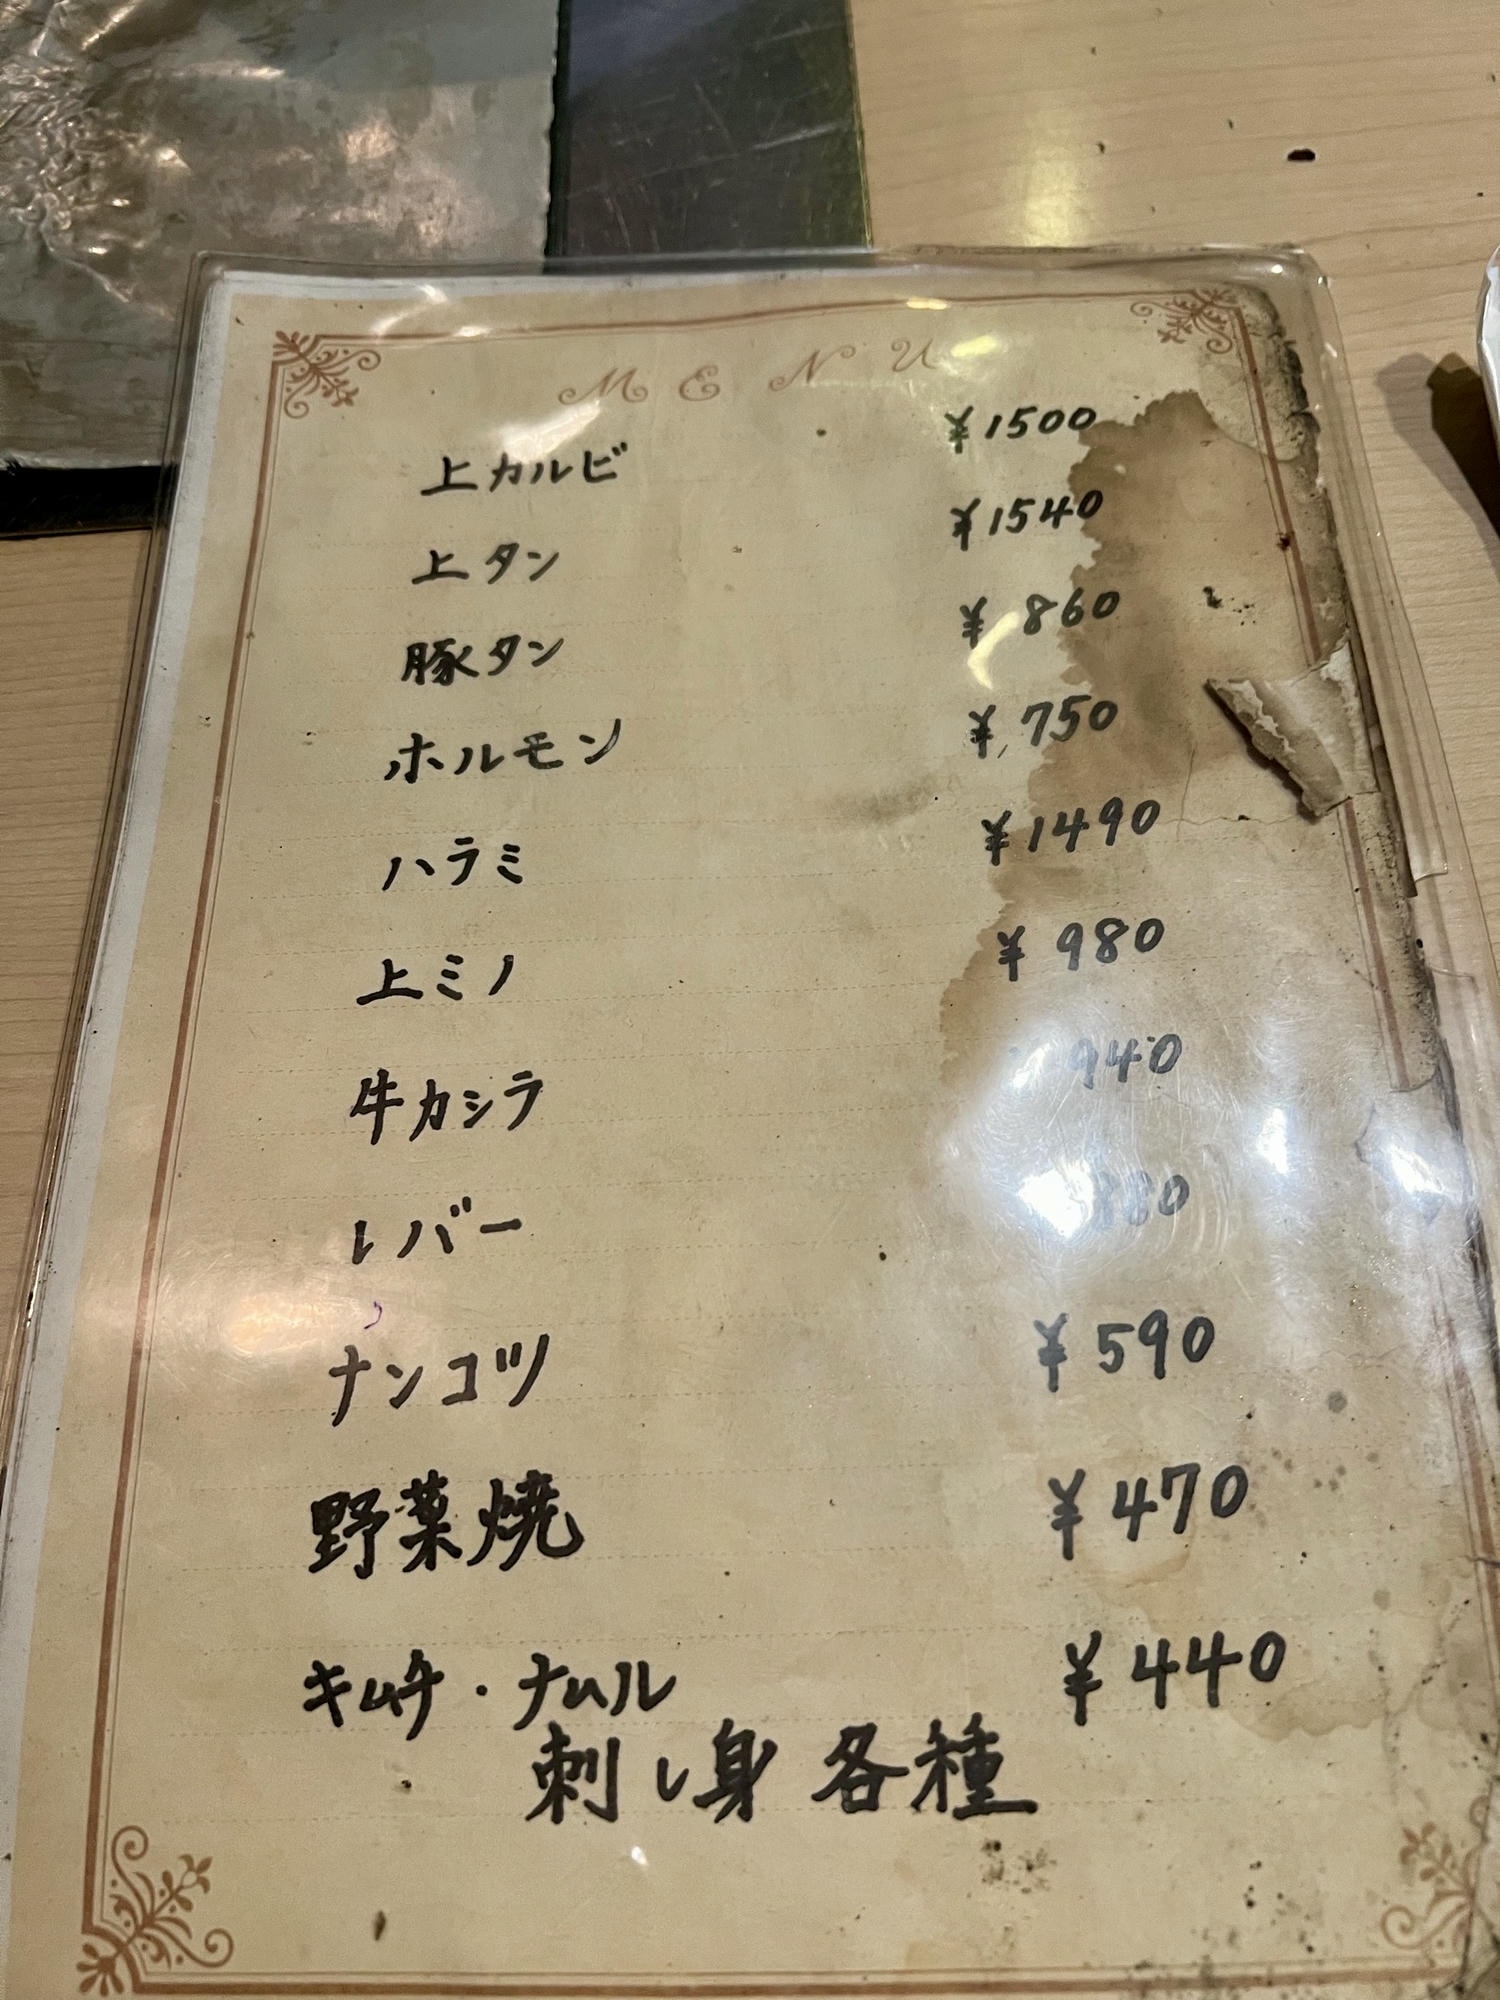 MENU
上カルビ ¥1500
上タン ¥1540
豚タン ¥860
ホルモン ¥750
ハラミ ¥1490
上ミノ ¥980
牛カシラ 940
レバー 880
ナンコツ ¥590
野菜焼 ¥470
キムチ・ナムル ¥440
刺し身各種